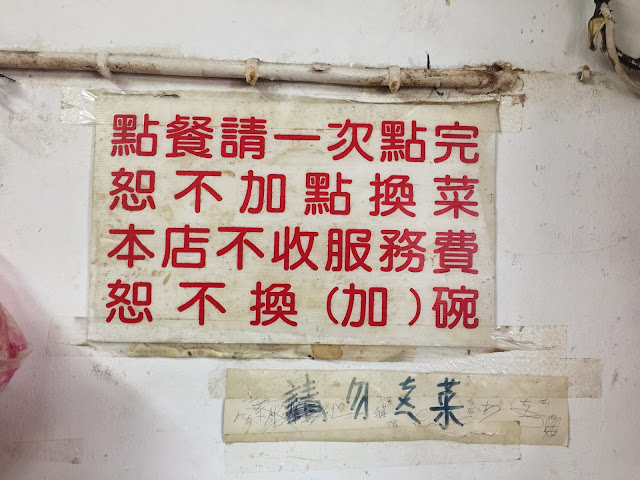 點餐請一次點完
恕不加點換菜
本店不收服務費
恕不換（加）碗
請勿 菜